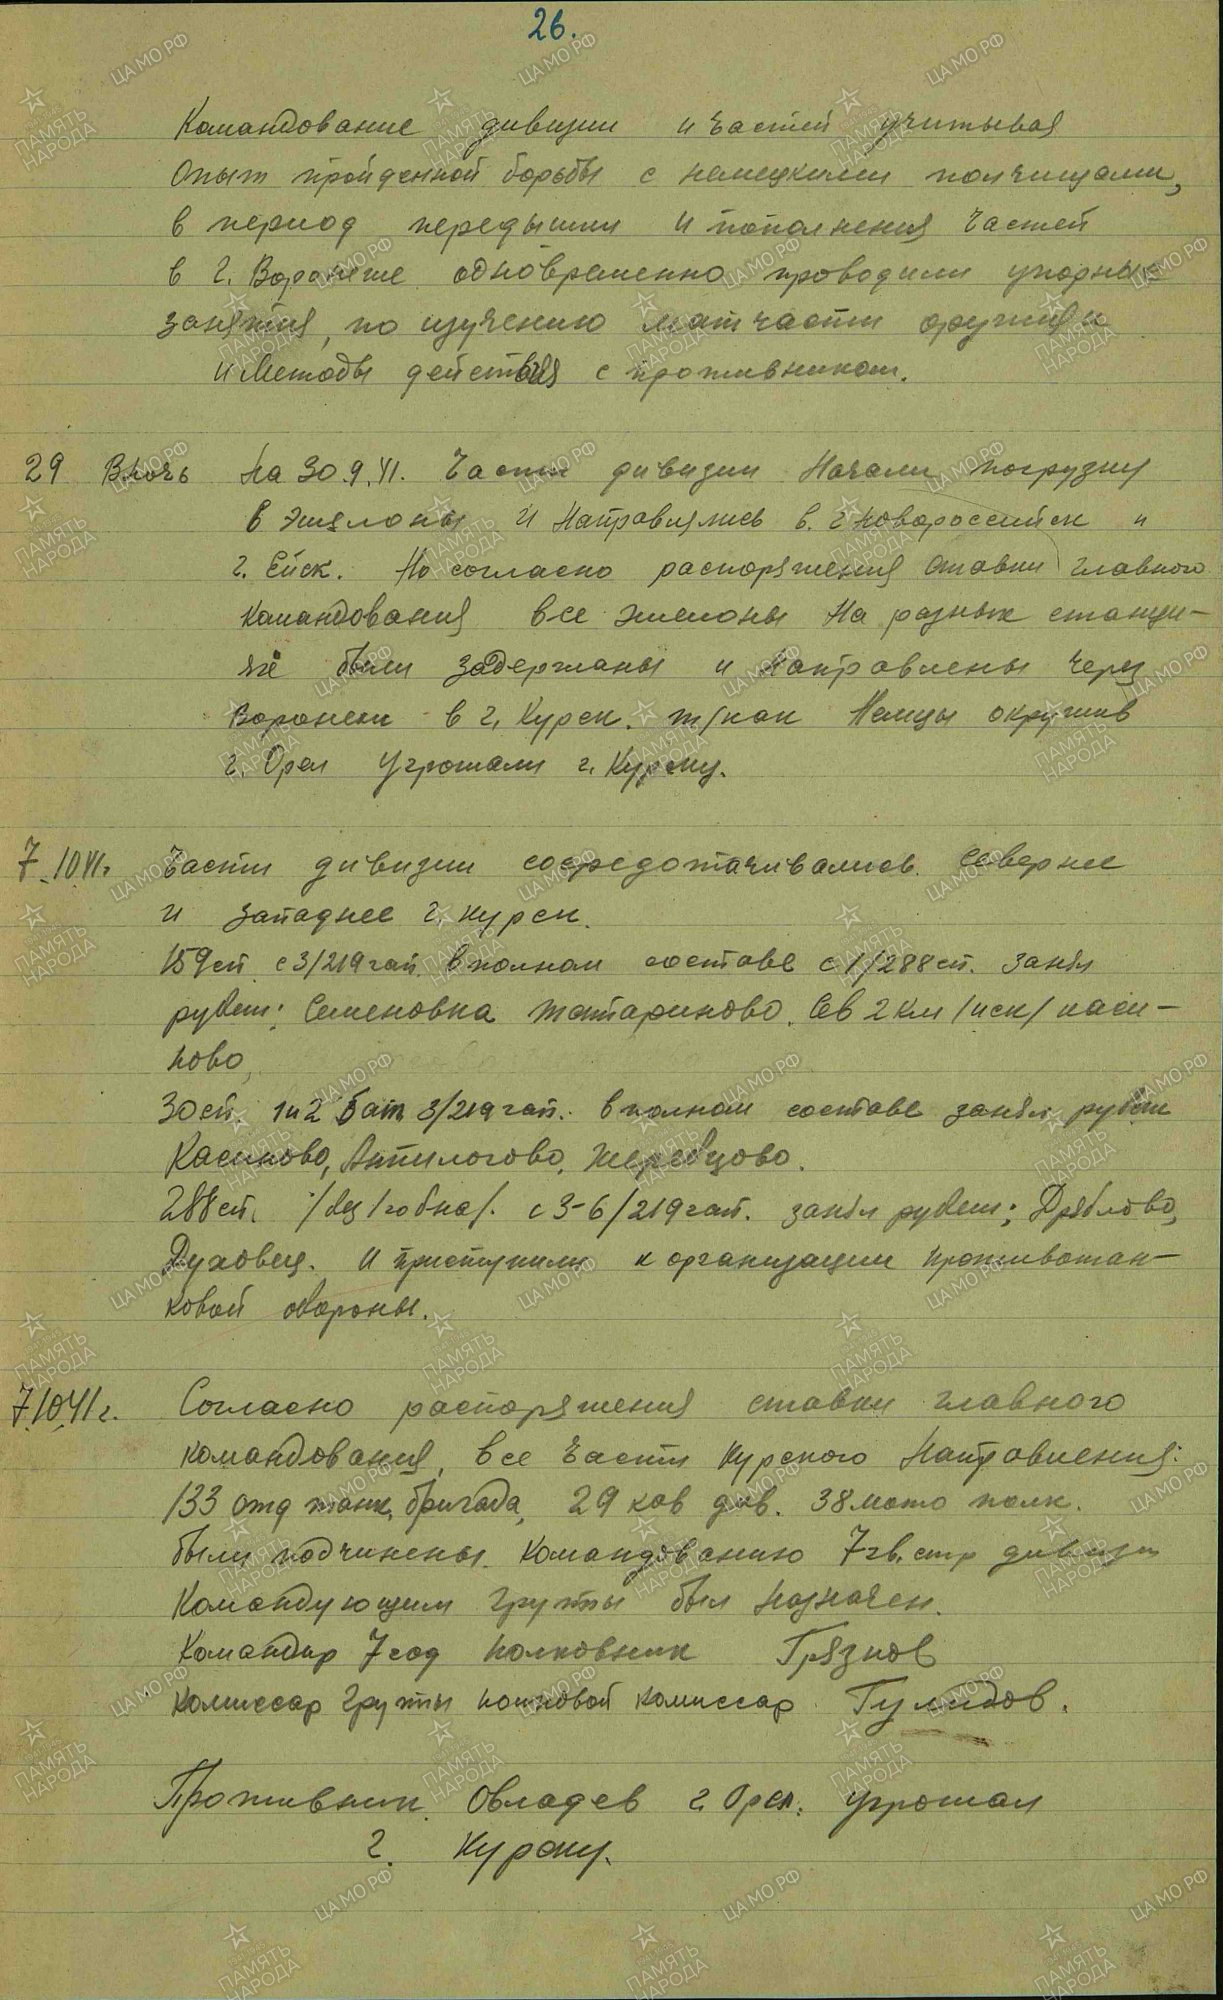 26.
Командование дивизии и частей учитывая
опыт пройденной борьбы с немецкими полчищами,
в период передышки и пополнения частей
в г. Воронеже одновременно проводили упорные
занятия, по изучению матчасти оружия
и методы действия с противником.
29 В ночь на 30.9.41. Части дивизии начали погрузку
в эшелоны и направились в г. Новороссийск и
г. Ейск. Но согласно распоряжения ставки главного
командования все эшелоны на разных станци-
ях были задержаны и направлены через
Воронеж в г. Курск. т/как Немцы окружив
г. Орел угрожали г. Курску.
7.10.41г. Части дивизии сосредотачивались севернее
и западнее г. Курск.
159сп с 3/219гап в полном составе с 1/288сп. занял
рубеж: Семеновка Татариново, Сев 2 км /иск/ Каси-
ново,
30сп 1 и 2 бат 3/219гап. в полном составе занял рубеж
Касиново, Анпилогово, Жеребцово.
288сп. /без 1го бна/. с 3-6/219гап. занял рубеж; Дряблово,
Духовец. И приступили к организации противотан-
ковой обороны.
7.10.41г. Согласно распоряжения ставки главного
командования, все части Курского направления:
133 отд танк, бригада, 29 кав див. 38 мото полк.
были подчинены командованию 7гв. стр дивизии
Командующим группы был назначен.
Командир 7гсд полковник Грязнов
комиссар группы полковой комиссар Гулидов.
Противник, овладев г. Орел. угрожал
г. Курску.
ЦА МО РФ
ПАМЯТЬ НАРОДА